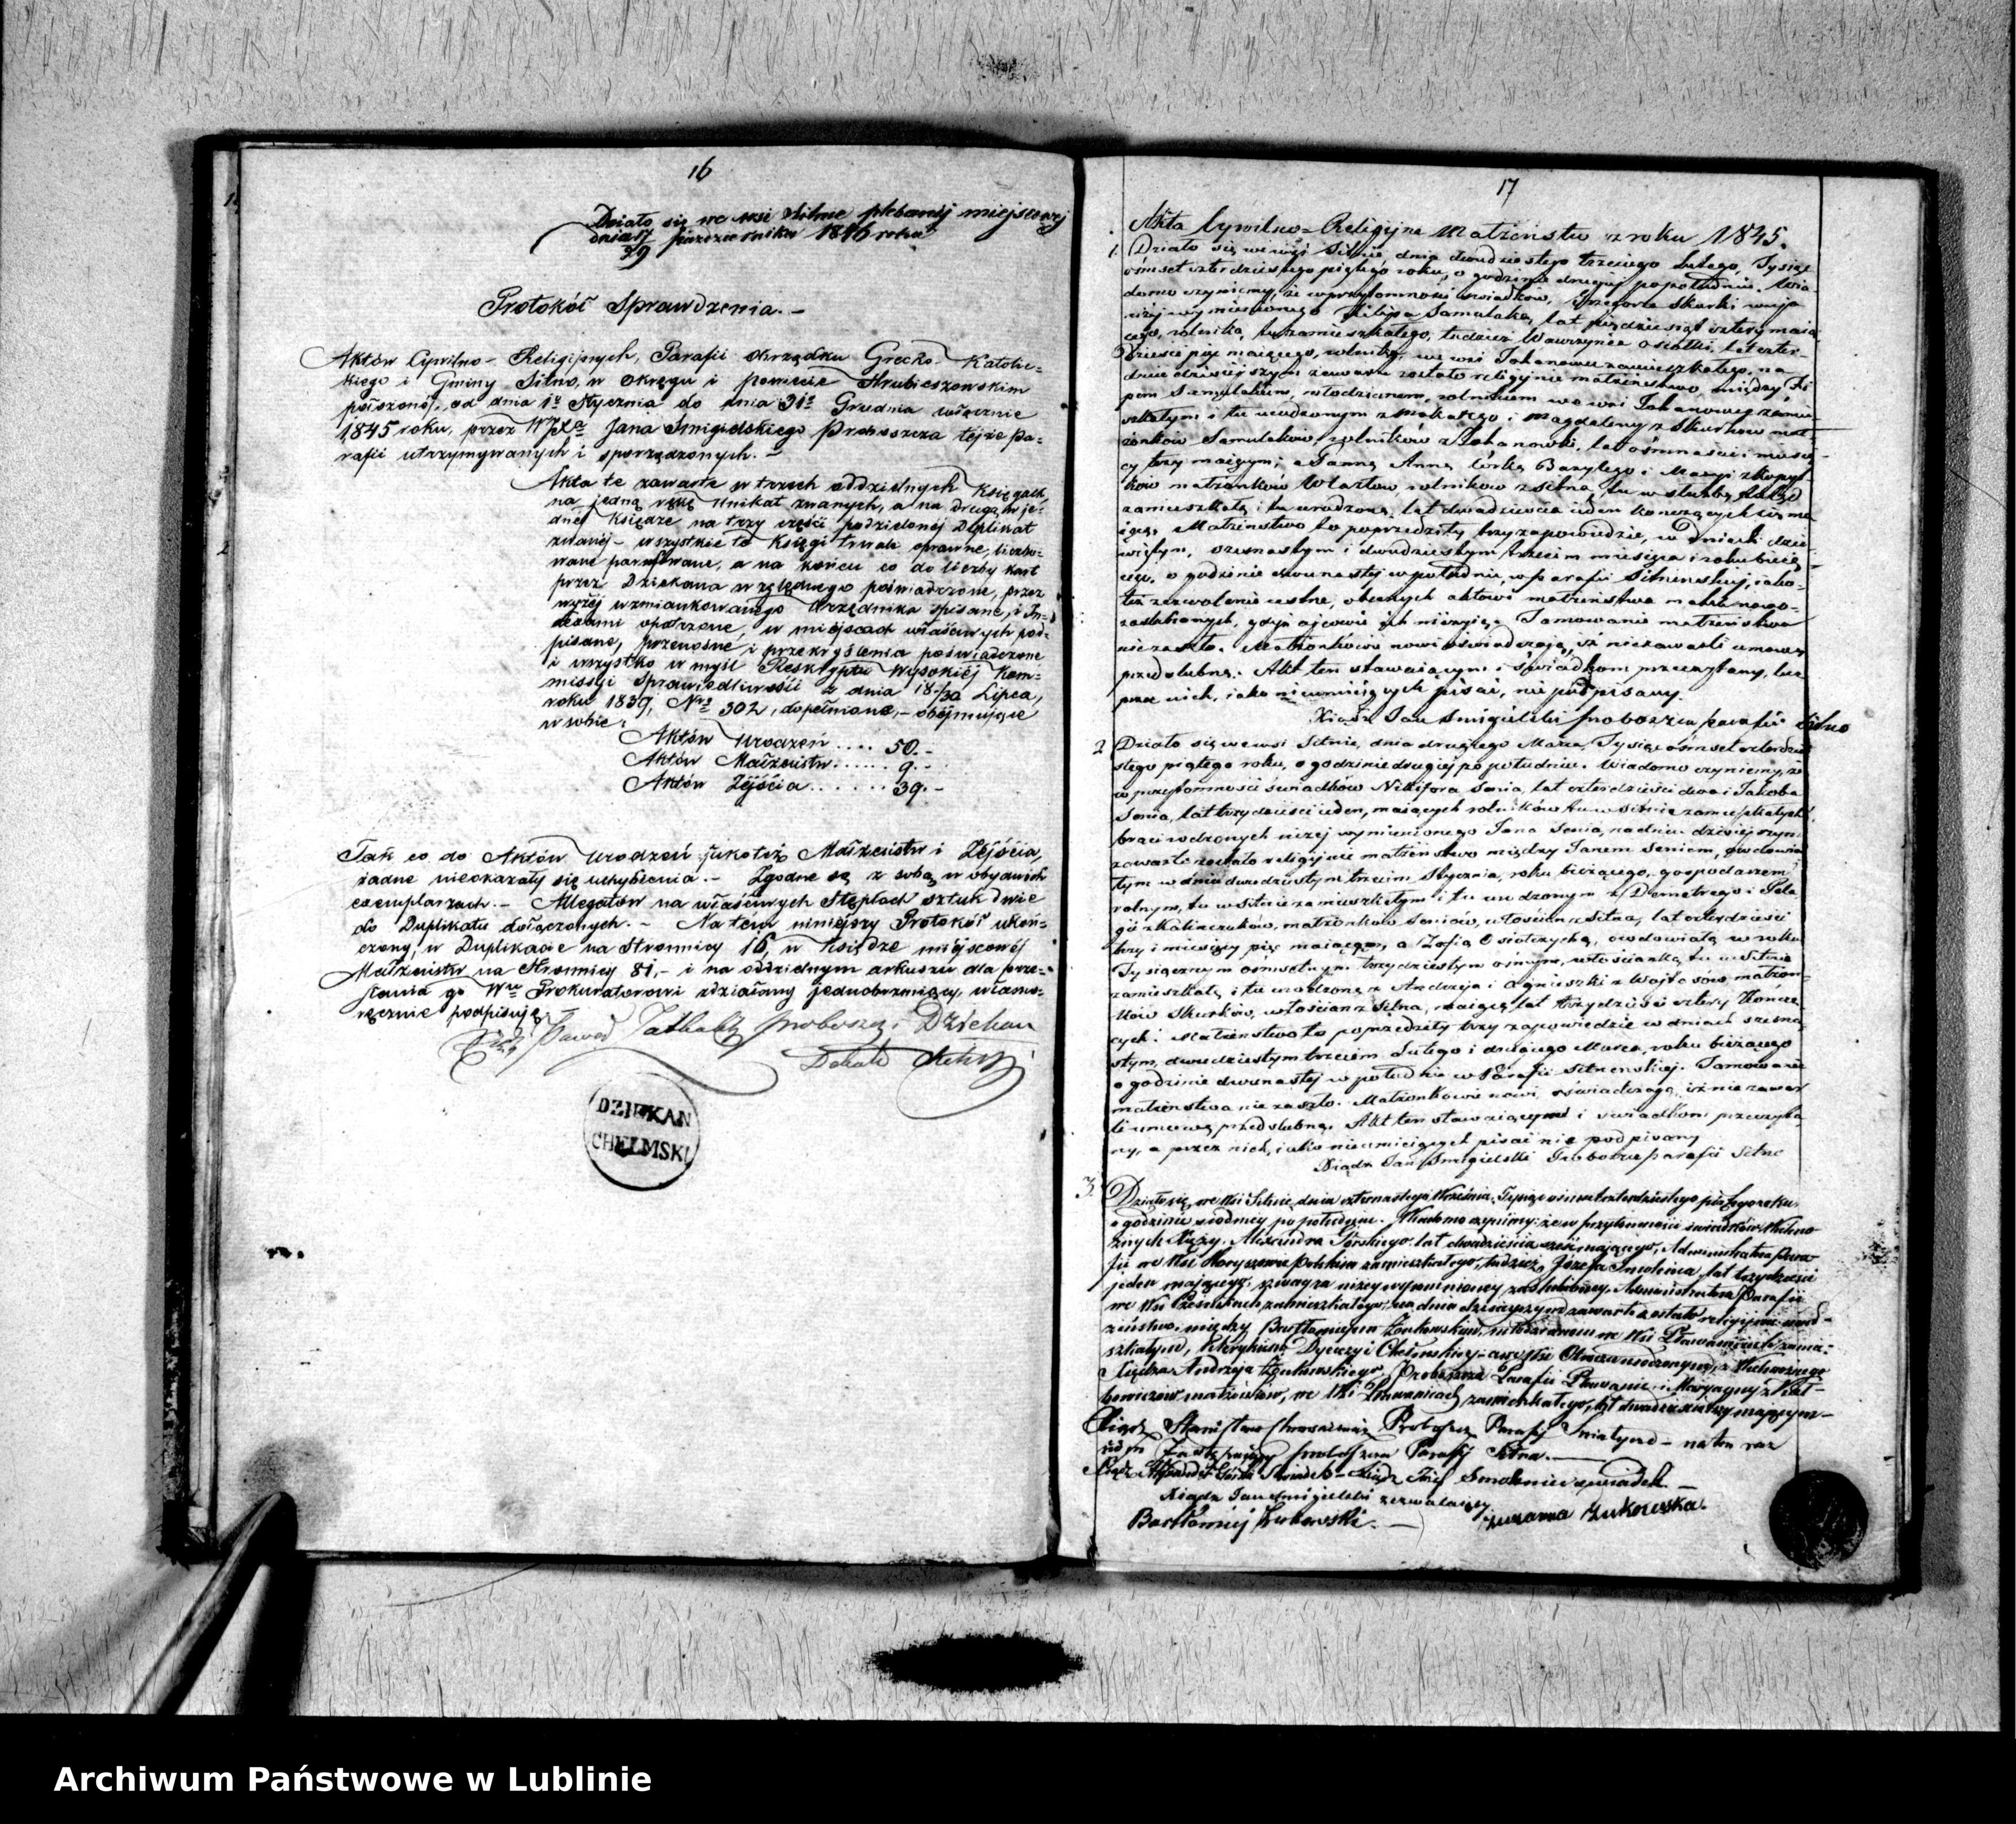 16
Działo się we wsi Sitnie plebanij miejscowej
dnia 17/29 października 1846 roku
Protokół Sprawdzenia. –
Aktów Cywilno-Religijnych, Parafii obrządku Grecko-Katolic-
kiego i Gminy Sitno, w Okręgu i powiecie Hrubieszowskim
położonej, od dnia 1º Stycznia do dnia 31º Grudnia włącznie
1845 roku, przez WJXa Jana Smigielskiego Proboszcza tejże pa-
rafii utrzymywanych i sporządzonych. –
Akta te zawarte w trzech oddzielnych Księgach,
na jedną rękę Unikat zwanych, a na drugą w je-
dnej Księdze na trzy części podzielonej Duplikat
zwanej – wszystkie te Księgi trwale oprawne, liczbo-
wane parafowane, a na końcu co do liczby kart
przez Dziekana względnego poświadczone, przez
wyżej wzmiankowanego Urzędnika spisane, i In-
dexami opatrzone, w miejscach właściwych pod-
pisane, przenośne i przekryślenia poświadczone
i wszystko w myśl Reskryptu Wysokiej Kom-
missyi Sprawiedliwości z dnia 18/30 Lipca,
roku 1839, Nro 302, dopełnione, – obejmujące
w sobie:
Aktów Urodzeń .... 50. –
Aktów Małżeństw ...... 9. –
Aktów Zejścia ....... 39. –
Tak co do Aktów Urodzeń jakoteż Małżeństw i Zejścia,
żadne nieokazały się uchybienia. – Zgodne są z sobą w obydwóch
exemplarzach. – Allegatów na właściwych Stęplach sztuk dwie
do Duplikatu dołączonych. – Na tém niniejszy Protokół ukoń-
czony, w Duplikacie na Stronnicy 16, w księdze miejscowej
Małżeństw na Stronnicy 81, – i na oddzielnym arkuszu dla prze-
słania go Wu Prokuratorowi zdziałany jednobrzmiący, własno-
ręcznie podpisują.
Proboszcz i Dziekan
DZIEKAN
CHEŁMSKI
17
Akta Cywilno-Religijne Małżeństw z roku 1845.
1. Działo się we wsi Sitnie, dnia dwudziestego trzeciego Lutego, Tysiąc
ośmset czterdziestego piątego roku, o godzinie drugiej popołudniu. Wia-
domo czynimy, że w przytomności świadków, Grzegorza Skurki wuja
niżej wymienionego Filipa Samulaka, lat pięćdziesiąt cztery mają-
cego, rolnika, tu zamieszkałego, tudzież Wawrzyńca Osiołki, lat czter-
dzieści pięć mającego, rolnika, we wsi Johanowie zamieszkałego, na
dniu dzisiejszym zawarte zostało religijne małżeństwo, między Fi-
pem Samulakiem, młodzianem, rolnikiem we wsi Johanowce zamie-
szkałym i tu urodzonym z Makarego i Magdaleny z Skurków mał-
żonków Samulaków, rolników z Johanowki, lat ośmnaście i miesię-
cy trzy mającym; a Panną Anną córką Bazylego i Maryi
małżonków rolników z Sitna, tu w służbie
zamieszkałą i tu urodzoną, lat dwadzieścia jeden kończących się ma-
jącą. Małżeństwo to poprzedziły trzy zapowiedzie, w dniach dzie-
więtym, szesnastym i dwudziestym trzecim miesiąca i roku bieżą-
cego, o godzinie dwunastej w południe, w parafii Sitnieńskiej, jako-
też zezwolenie ustne, obecnych aktowi małżeństwa matki nowo-
zaślubionych, gdyż ojcowie ich nieżyją. Tamowanie małżeństwa
niezaszło. Małżonkowie nowi oświadczają, iż niezawarli umowy
przedślubnej. Akt ten stawającym i świadkom przeczytany, lecz
przez nich, jako nieumiejących pisać, nie podpisany.
Xiądz Jan Smigielski Proboszcz parafii Sitno
2 Działo się we wsi Sitnie, dnia drugiego Marca, Tysiąc ośmset czterdzie-
stego piątego roku, o godzinie drugiej po południu. Wiadomo czynimy, że
w przytomności świadków Nikifora Senia, lat czterdzieści dwa i Jakoba
Senia, lat trzydzieści jeden, mających rolników tu w Sitnie zamieszkałych,
braci rodzonych niżej wymienionego Jana Senia, na dniu dzisiejszym
zawarte zostało religijne małżeństwo między Janem Seniem, owdowia-
łym w dniu dwudziestym trzecim Stycznia, roku bieżącego, gospodarzem
rolnym, tu w Sitnie zamieszkałym i tu urodzonym z Demetrego i Pela-
gii z Kalinczuków, małżonków Seniów, włościan z Sitna, lat czterdzieści
trzy i miesięcy pięć mającym, a Zofią Osiołczychą, owdowiałą w roku
Tysiącznym ośmsetnym trzydziestym ośmym, włościanką tu w Sitnie
zamieszkałą i tu urodzoną z Andrzeja i Agnieszki z Wojtosów małżon-
ków Skurków, włościan z Sitna, mającą lat trzydzieści cztery kończą-
cych. Małżeństwo to poprzedziły trzy zapowiedzie w dniach szesna-
stym, dwudziestym trzecim Lutego i drugiego Marca, roku bieżącego
o godzinie dwunastej w południe w Parafii Sitnenskiej. Tamowanie
małżeństwa nie zaszło. Małżonkowie nowi oświadczają, iż nie zawar-
li umowę przedślubną. Akt ten stawającym i świadkom przeczyta-
ny, a przez nich, jako nieumiejących pisać nie podpisany
Xiądz Jan Smigielski Proboszcz parafii Sitno
3. Działo się we Wsi Sitnie dnia czternastego Września, Tysiąc ośmset czterdziestego piątego roku,
o godzinie siódmey po południu. Wiadomo czynimy: że w przytomności świadków Wielmo-
żnych Xięży, Alexandra Górskiego lat dwadzieścia sześć mającego, Administratora Para-
fii we Wsi zamieszkałego, tudzież Józefa Smoleńca, lat trzydzieści
jeden mającego, szwagra niżey wymienioney zaślubioney, Administratora Parafii
we Wsi zamieszkałego, na dniu dzisieyszym zawarte zostało religijne mał-
żeństwo, między Bartłomiejem Żukowskim, młodzianem we Wsi Pławanicach zamie-
szkałym, Klerykiem Dyecezyi Chełmskiey urodzonym, z Wielmożnego
Xiędza Andrzeja Żukowskiego, Proboszcza Parafii Pławanic i Maryanny z
małżonków, we Wsi Pławanicach zamieszkałego, lat dwadzieścia trzy mającym –
Xiądz Stanisław Proboszcz Parafij Śniatycze – na ten raz
Zastępujący proboszcza Parafij Sitna. –
Xiądz Alexander Górski Świadek – Xiądz Józef Smoleniec świadek. –
Xiądz Jan Smigielski zezwalający
Bartłomiej Żukowski. – Zuzanna Żukowska.
Archiwum Państwowe w Lublinie